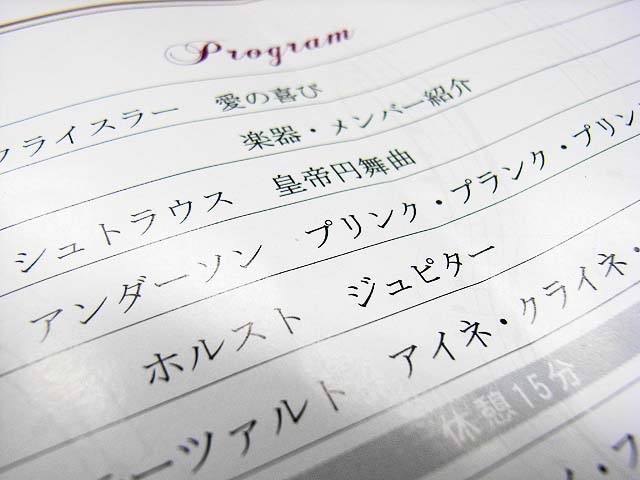 Program
クライスラー 愛の喜び
楽器・メンバー紹介
シュトラウス 皇帝円舞曲
アンダーソン プリンク・プランク・プリン
ホルスト ジュピター
ーツァルト アイネ・クライネ・
休憩15分